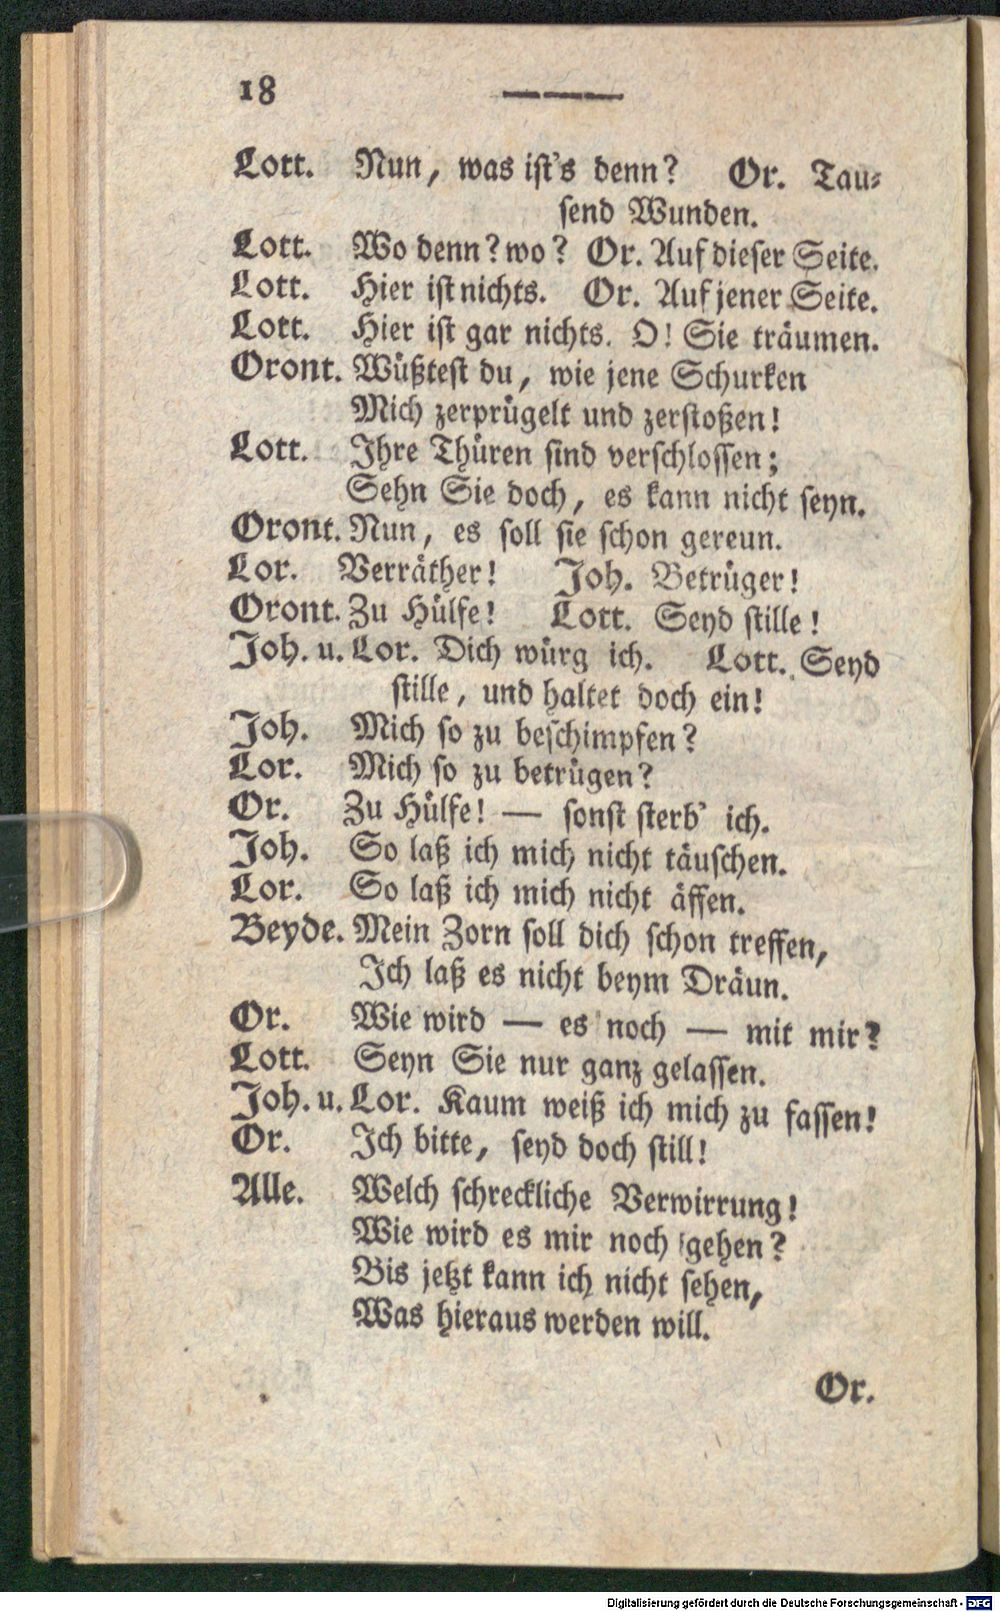 18
Lott. Nun, was ist's denn? Or. Tau-
send Wunden.
Lott. Wo denn? wo? Or. Auf dieser Seite.
Lott. Hier ist nichts. Or. Auf jener Seite.
Lott. Hier ist gar nichts. O! Sie träumen.
Oront. Wüßtest du, wie jene Schurken
Mich zerprügelt und zerstoßen!
Lott. Ihre Thüren sind verschlossen;
Sehn Sie doch, es kann nicht seyn.
Oront. Nun, es soll sie schon gereun.
Lor. Verräther! Joh. Betrüger!
Oront. Zu Hülfe! Lott. Seyd stille!
Joh. u. Lor. Dich würg ich. Lott. Seyd
stille, und haltet doch ein!
Joh. Mich so zu beschimpfen?
Lor. Mich so zu betrügen?
Or. Zu Hülfe! — sonst sterb' ich.
Joh. So laß ich mich nicht täuschen.
Lor. So laß ich mich nicht äffen.
Beyde. Mein Zorn soll dich schon treffen,
Ich laß es nicht beym Dräun.
Or. Wie wird — es noch — mit mir?
Lott. Seyn Sie nur ganz gelassen.
Joh. u. Lor. Kaum weiß ich mich zu fassen!
Or. Ich bitte, seyd doch still!
Alle. Welch schreckliche Verwirrung!
Wie wird es mir noch gehen?
Bis jetzt kann ich nicht sehen,
Was hieraus werden will.
Or.
Digitalisierung gefördert durch die Deutsche Forschungsgemeinschaft - DFG